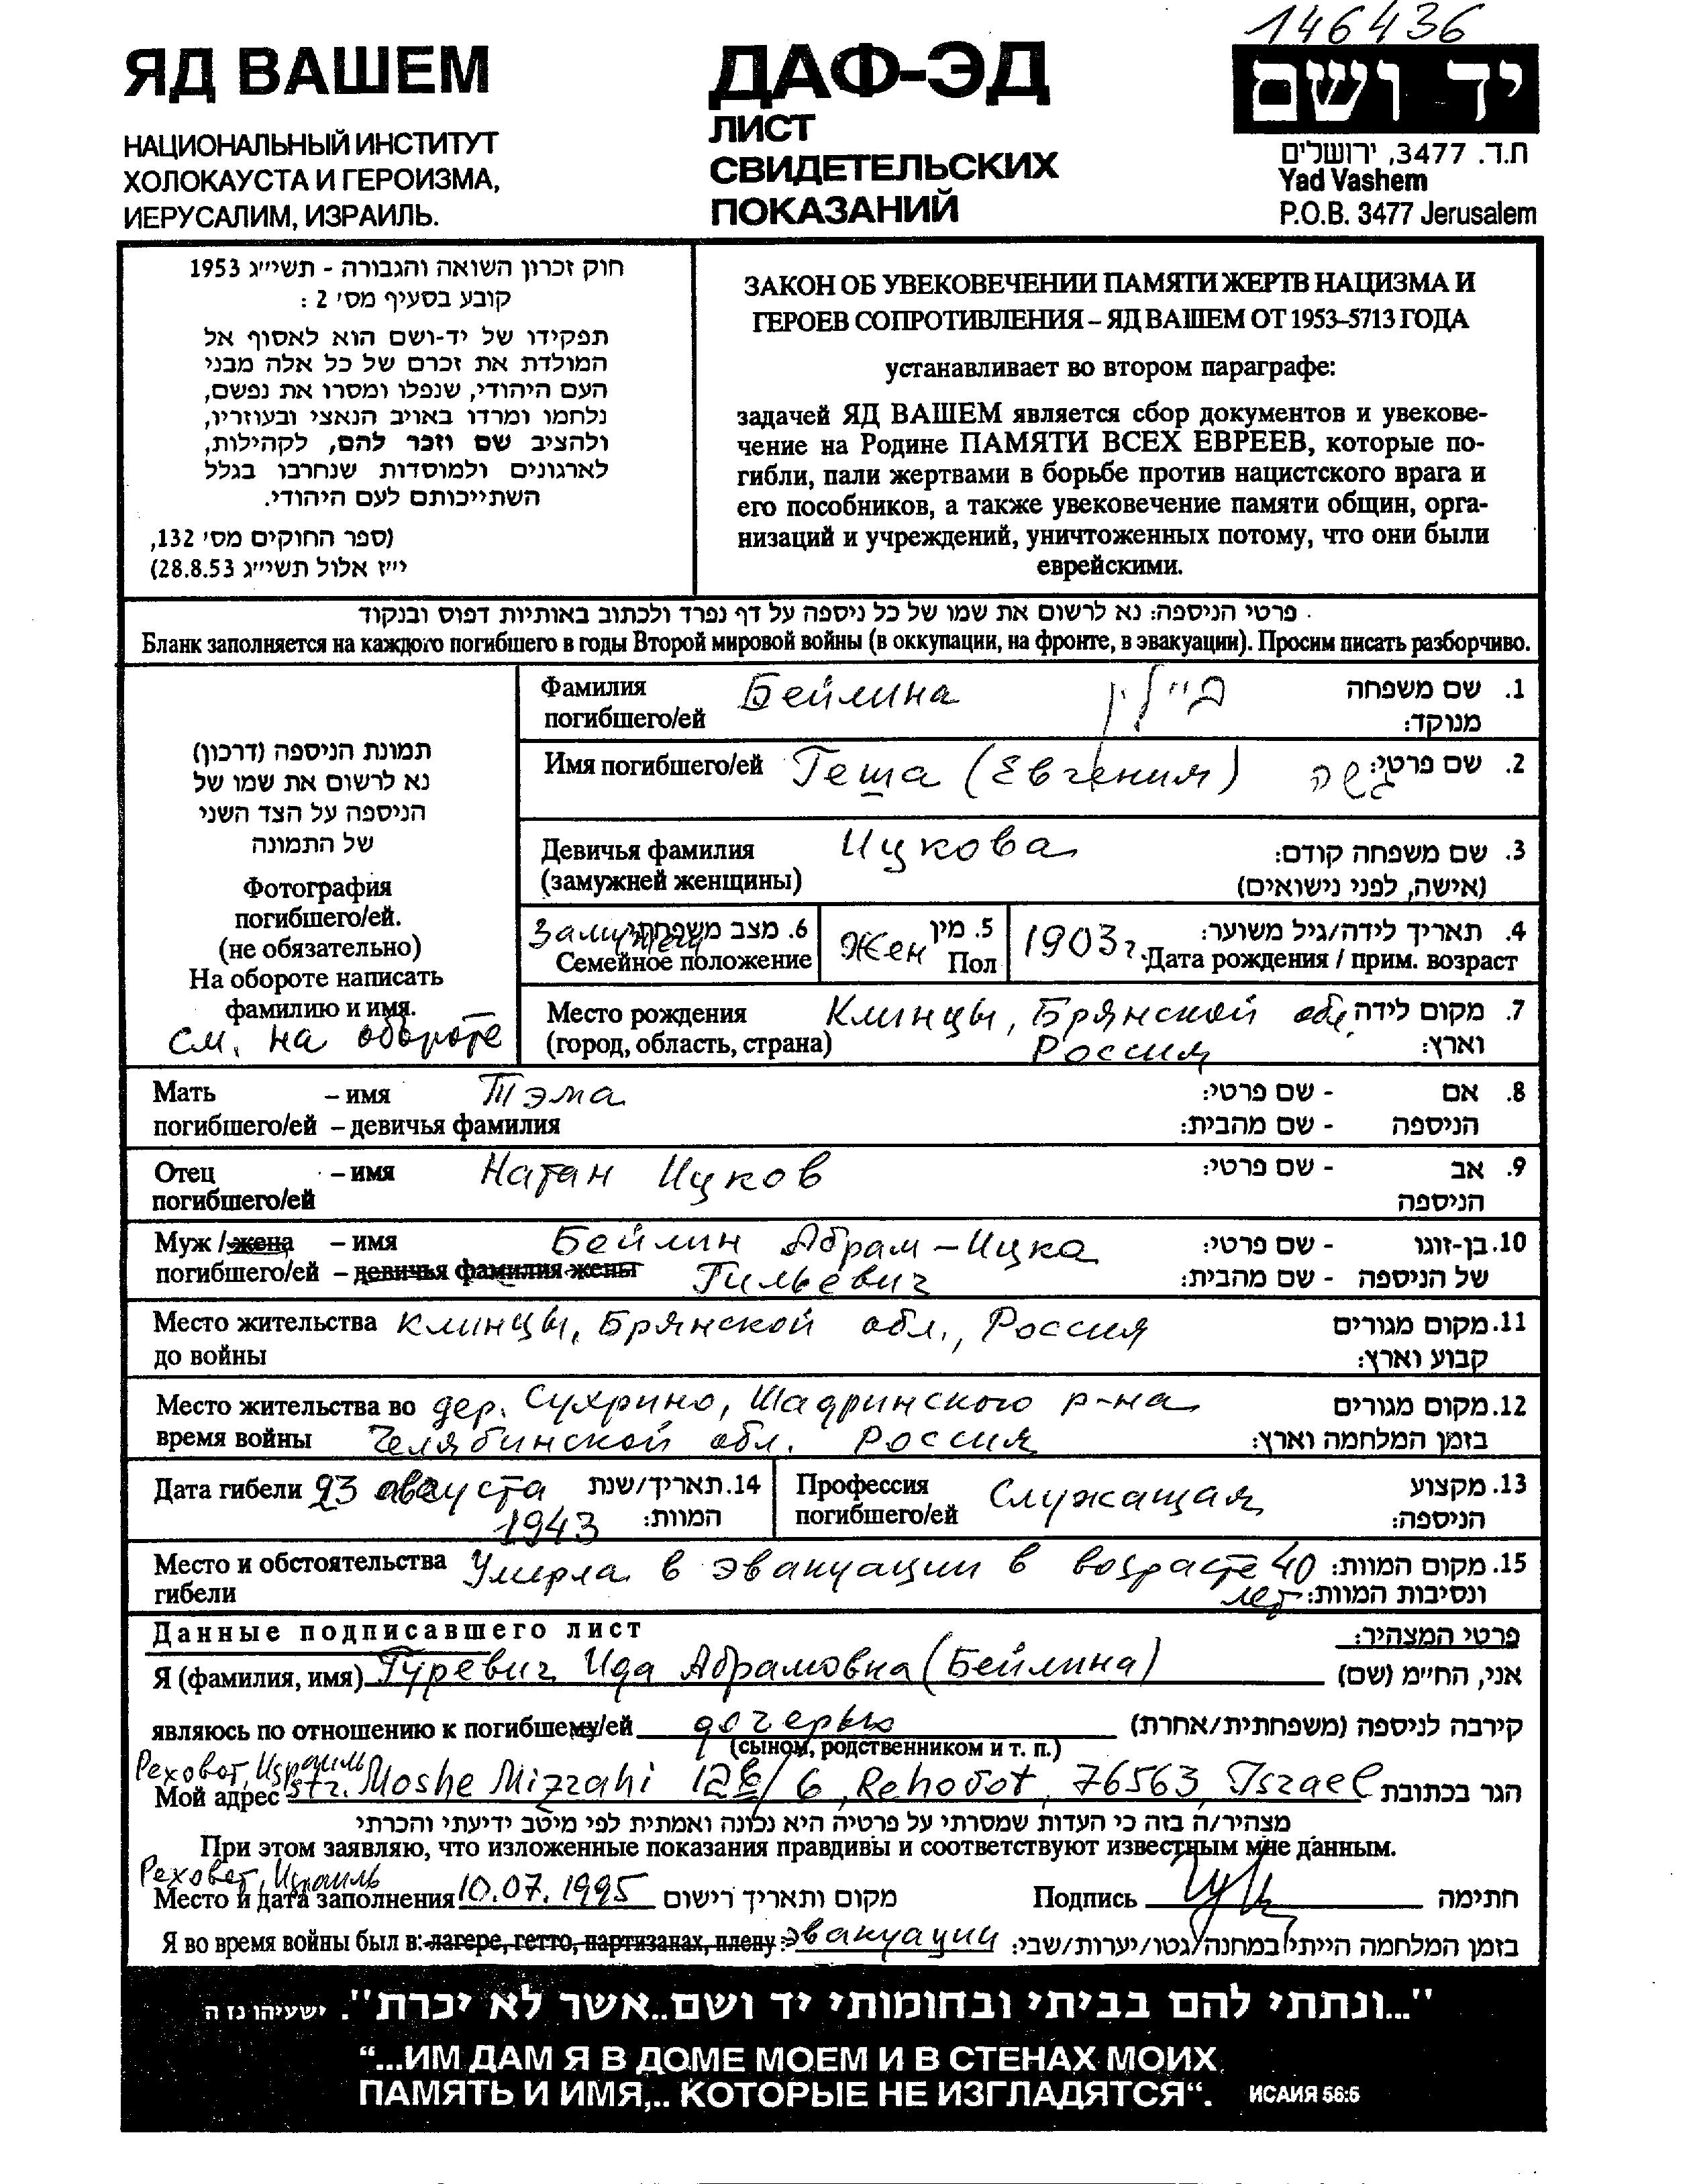 146436
ЯД ВАШЕМ
НАЦИОНАЛЬНЫЙ ИНСТИТУТ
ХОЛОКАУСТА И ГЕРОИЗМА,
ИЕРУСАЛИМ, ИЗРАИЛЬ.
ДАФ-ЭД
ЛИСТ
СВИДЕТЕЛЬСКИХ
ПОКАЗАНИЙ
יד ושם
ת.ד. 3477, ירושלים
Yad Vashem
P.O.B. 3477 Jerusalem
חוק זכרון השואה והגבורה - תשי״ג 1953
קובע בסעיף מס׳ 2 :
תפקידו של יד-ושם הוא לאסוף אל
המולדת את זכרם של כל אלה מבני
העם היהודי, שנפלו ומסרו את נפשם,
נלחמו ומרדו באויב הנאצי ובעוזריו,
ולהציב שם וזכר להם, לקהילות,
לארגונים ולמוסדות שנחרבו בגלל
השתייכותם לעם היהודי.
(ספר החוקים מס׳ 132,
י״ז אלול תשי״ג 28.8.53)
ЗАКОН ОБ УВЕКОВЕЧЕНИИ ПАМЯТИ ЖЕРТВ НАЦИЗМА И
ГЕРОЕВ СОПРОТИВЛЕНИЯ – ЯД ВАШЕМ ОТ 1953–5713 ГОДА
устанавливает во втором параграфе:
задачей ЯД ВАШЕМ является сбор документов и увекове-
чение на Родине ПАМЯТИ ВСЕХ ЕВРЕЕВ, которые по-
гибли, пали жертвами в борьбе против нацистского врага и
его пособников, а также увековечение памяти общин, орга-
низаций и учреждений, уничтоженных потому, что они были
еврейскими.
פרטי הניספה: נא לרשום את שמו של כל ניספה על דף נפרד ולכתוב באותיות דפוס ובנקוד
Бланк заполняется на каждого погибшего в годы Второй мировой войны (в оккупации, на фронте, в эвакуации). Просим писать разборчиво.
תמונת הניספה (דרכון)
נא לרשום את שמו של
הניספה על הצד השני
של התמונה
Фотография
погибшего/ей.
(не обязательно)
На обороте написать
фамилию и имя.
см. на обороте
Фамилия Бейлина ביילין 1. שם משפחה
погибшего/ей מנוקד:
Имя погибшего/ей Геша (Евгения) גשה 2. שם פרטי:
Девичья фамилия Ицкова 3. שם משפחה קודם:
(замужней женщины) (אישה, לפני נישואים)
Замужем 6. מצב משפחתי Жен 5. מין 1903 г. 4. תאריך לידה/גיל משוער:
Семейное положение Пол Дата рождения / прим. возраст
Место рождения Клинцы, Брянской обл. 7. מקום לידה
(город, область, страна) Россия וארץ:
Мать – имя Тэма 8. אם - שם פרטי:
погибшего/ей – девичья фамилия הניספה - שם מהבית:
Отец – имя Натан Ицков 9. אב - שם פרטי:
погибшего/ей הניספה
Муж / жена – имя Бейлин Абрам-Ицка 10. בן-זוגו - שם פרטי:
погибшего/ей – девичья фамилия жены Гильевич של הניספה - שם מהבית:
Место жительства Клинцы, Брянской обл., Россия 11. מקום מגורים
до войны קבוע וארץ:
Место жительства во дер. Сухрино, Шадринского р-на 12. מקום מגורים
время войны Челябинской обл. Россия בזמן המלחמה וארץ:
Дата гибели 23 августа 14. תאריך/שנת
1943 המוות:
Профессия Служащая 13. מקצוע
погибшего/ей הניספה:
Место и обстоятельства Умерла в эвакуации в возрасте 40 15. מקום המוות:
гибели лет ונסיבות המוות:
Данные подписавшего лист פרטי המצהיר:
Я (фамилия, имя) Гуревич Ида Абрамовна (Бейлина) אני, הח״מ (שם)
являюсь по отношению к погибшему/ей дочерью קירבה לניספה (משפחתית/אחרת)
(сыном, родственником и т. п.)
Реховот, Израиль
Мой адрес str. Moshe Mizrahi 12 /6, Rehovot, 76563, Israel הגר בכתובת
מצהיר/ה בזה כי העדות שמסרתי על פרטיה היא נכונה ואמתית לפי מיטב ידיעתי והכרתי
При этом заявляю, что изложенные показания правдивы и соответствуют известным мне данным.
Реховот, Израиль
Место и дата заполнения 10.07.1995 מקום ותאריך רישום Подпись חתימה
Я во время войны был в: лагере, гетто, партизанах, плену: эвакуации בזמן המלחמה הייתי במחנה/גטו/יערות/שבי:
"...ונתתי להם בביתי ובחומותי יד ושם..אשר לא יכרת". ישעיהו נז ה
“...ИМ ДАМ Я В ДОМЕ МОЕМ И В СТЕНАХ МОИХ
ПАМЯТЬ И ИМЯ,.. КОТОРЫЕ НЕ ИЗГЛАДЯТСЯ“. ИСАИЯ 56:5